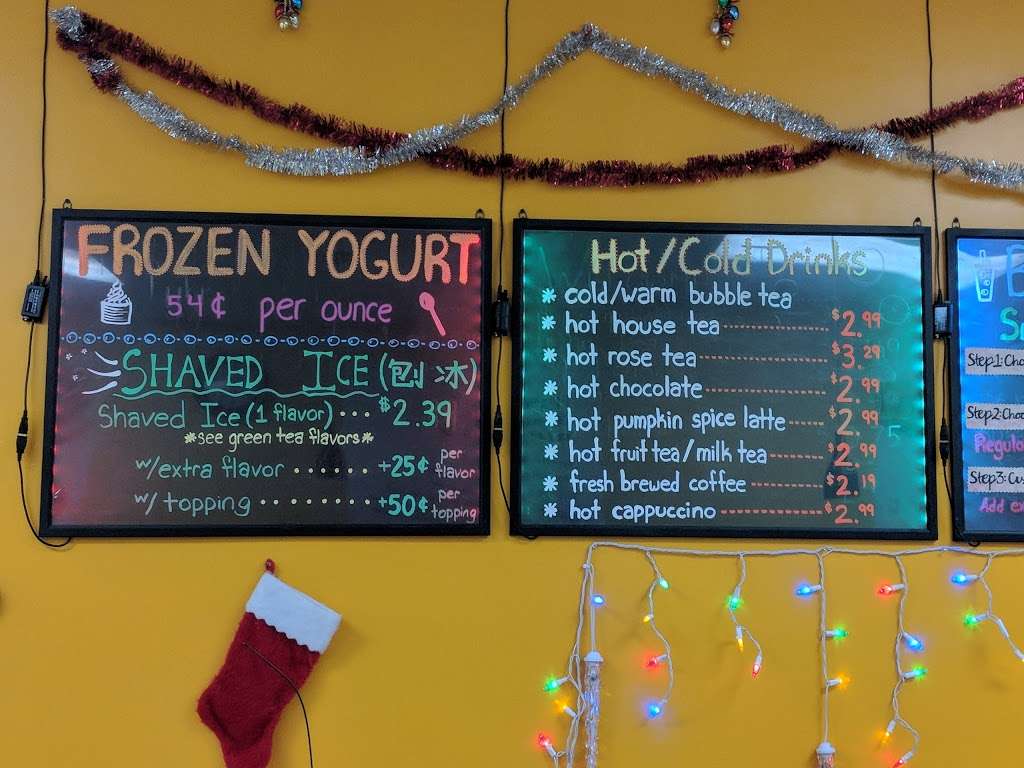 FROZEN YOGURT
54¢ per ounce
SHAVED ICE (刨冰)
Shaved Ice (1 flavor) ··· $2.39
*see green tea flavors*
w/extra flavor ······ +25¢ per flavor
w/ topping ········ +50¢ per topping
Hot/Cold Drinks
* cold/warm bubble tea
* hot house tea ---------- $2.99
* hot rose tea ---------- $3.29
* hot chocolate ---------- $2.99
* hot pumpkin spice latte ---- $2.99
* hot fruit tea/milk tea ------ $2.99
* fresh brewed coffee ------- $2.19
* hot cappuccino ---------- $2.99
Step1:
Step2:
Step3:
Add